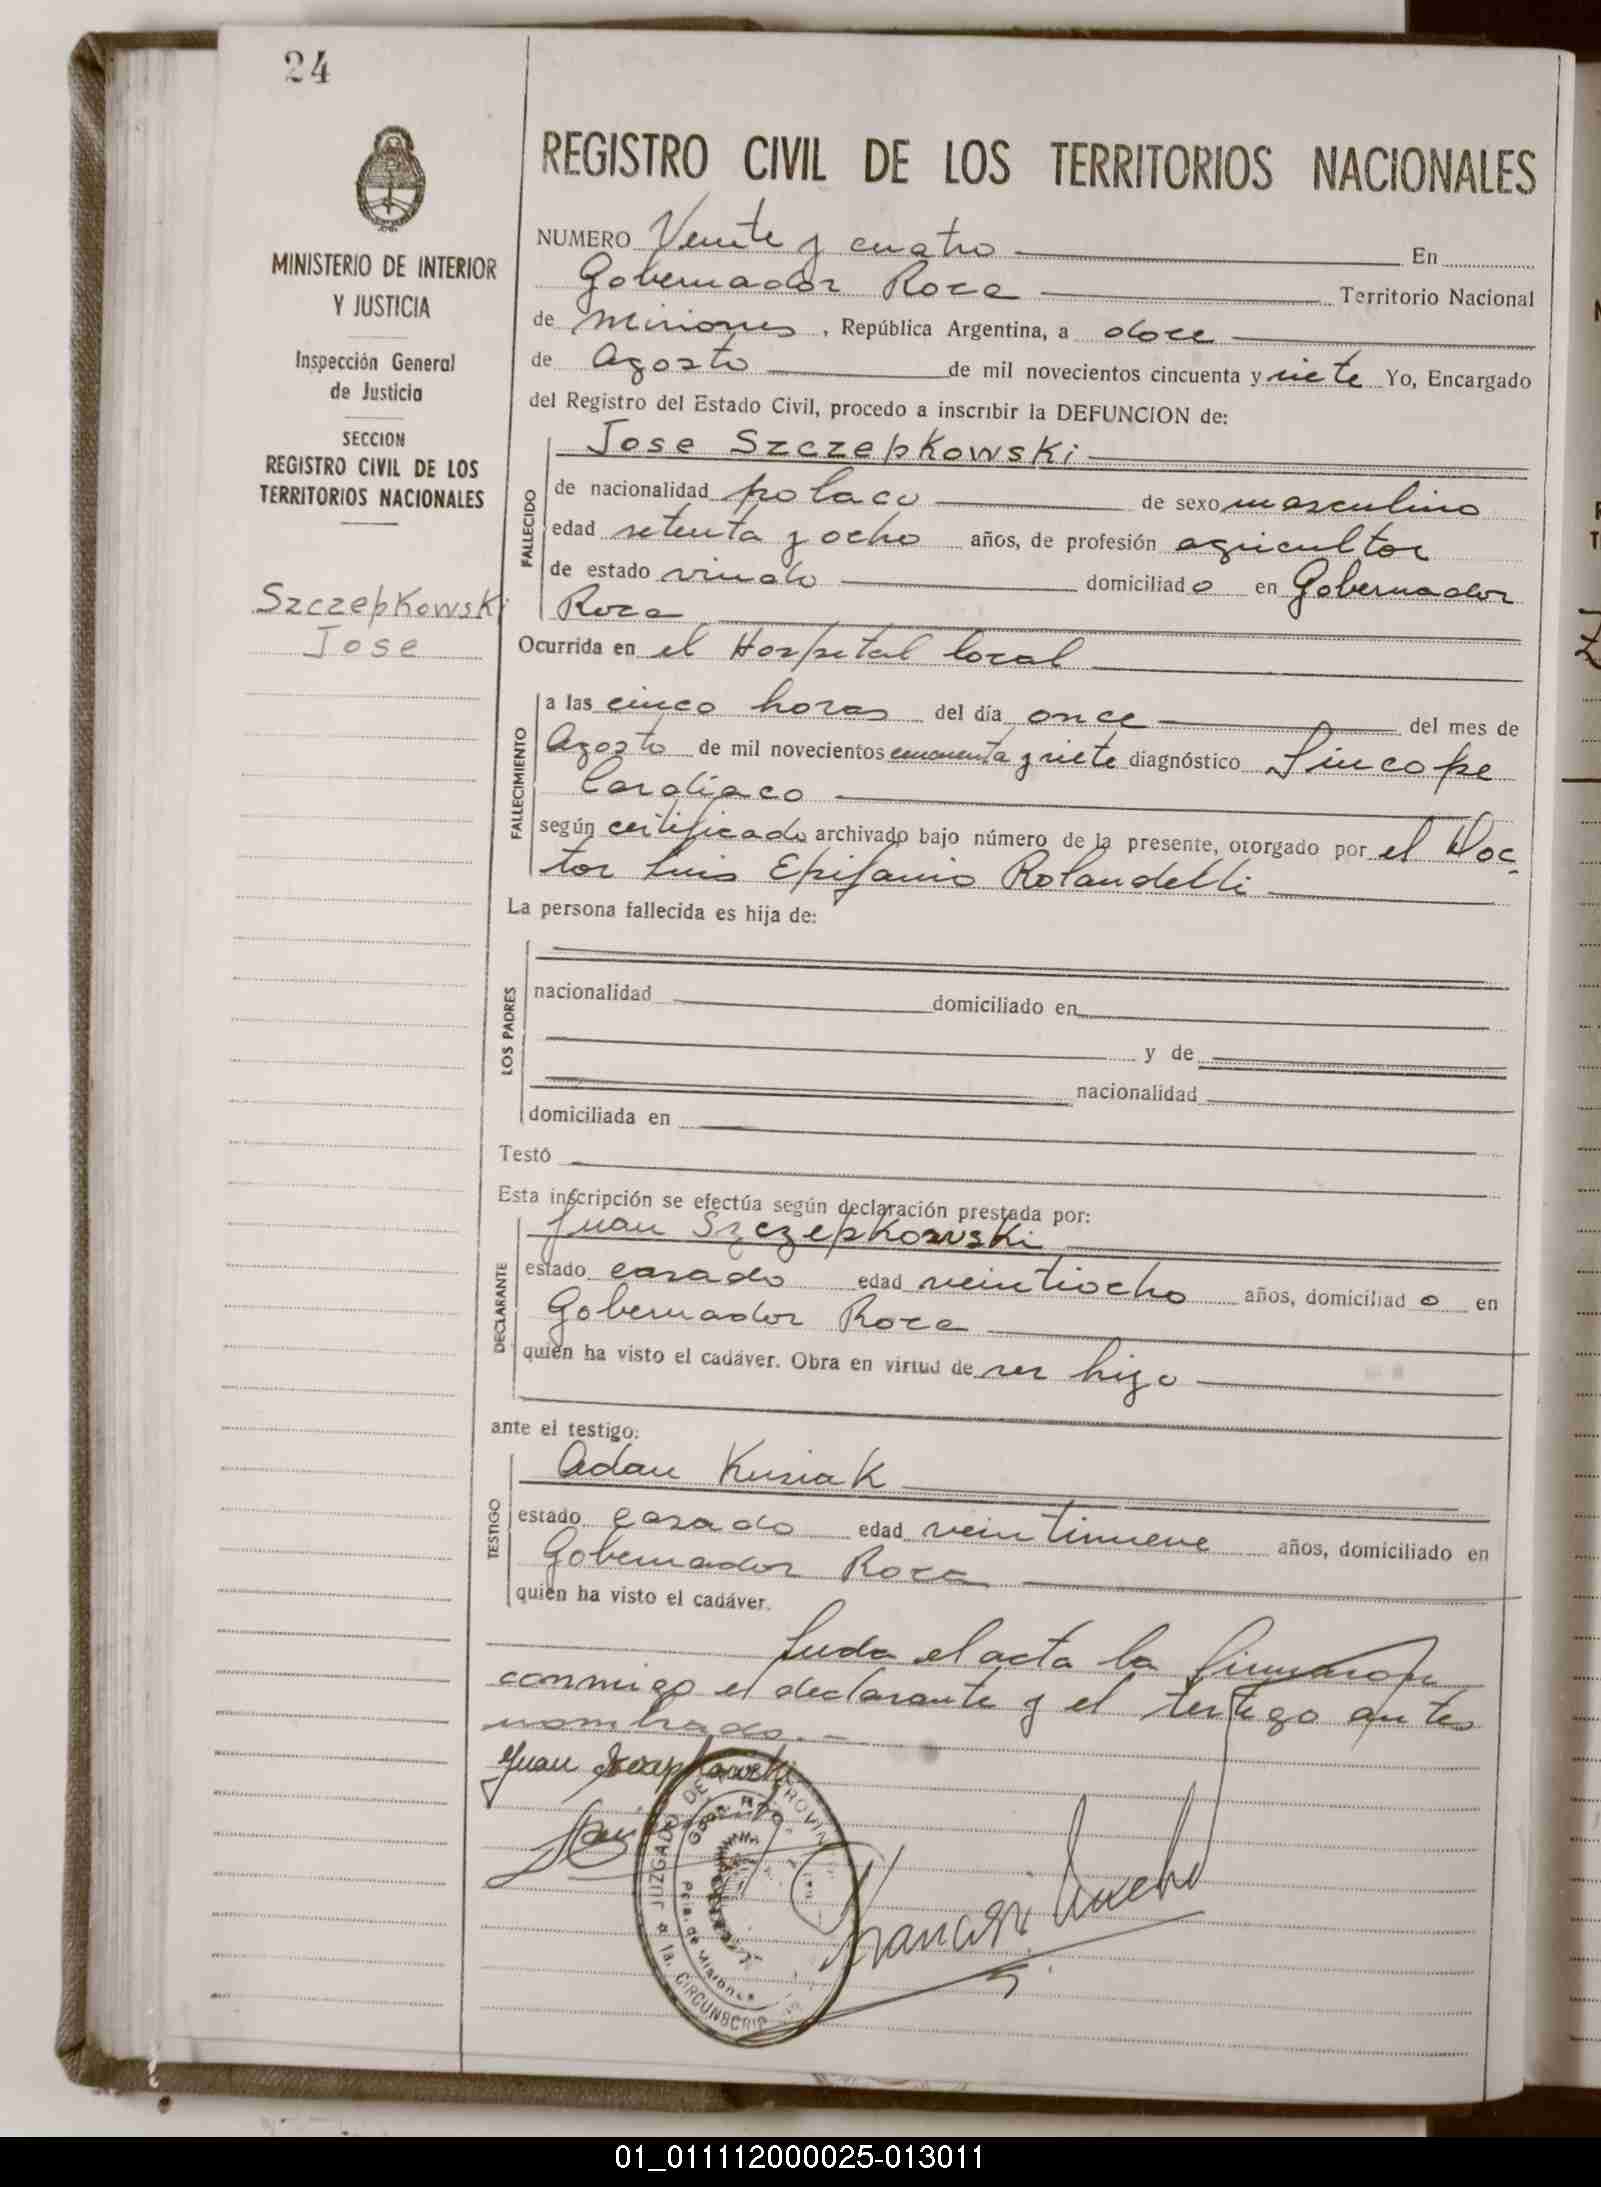 24
MINISTERIO DE INTERIOR
Y JUSTICIA
Inspección General
de Justicia
SECCION
REGISTRO CIVIL DE LOS
TERRITORIOS NACIONALES
Szczepkowski
Jose
REGISTRO CIVIL DE LOS TERRITORIOS NACIONALES
NUMERO Veinte y cuatro En
Gobernador Roca Territorio Nacional
de Misiones, República Argentina, a doce
de Agosto de mil novecientos cincuenta y siete Yo, Encargado
del Registro del Estado Civil, procedo a inscribir la DEFUNCION de:
FALLECIDO
Jose Szczepkowski
de nacionalidad polaco de sexo masculino
edad setenta y ocho años, de profesión agricultor
de estado viudo domiciliado en Gobernador
Roca
Ocurrida en el Hospital local
FALLECIMIENTO
a las cinco horas del día once del mes de
Agosto de mil novecientos cincuenta y siete diagnóstico Síncope
Cardíaco
según certificado archivado bajo número de la presente, otorgado por el Doc-
tor Luis Epifanio Rolandelli
La persona fallecida es hija de:
LOS PADRES
nacionalidad domiciliado en
y de
nacionalidad
domiciliada en
Testó
Esta inscripción se efectúa según declaración prestada por:
DECLARANTE
Juan Szczepkowski
estado casado edad veintiocho años, domiciliado en
Gobernador Roca
quien ha visto el cadáver. Obra en virtud de ser hijo
ante el testigo:
TESTIGO
Adan Kusiak
estado casado edad veintinueve años, domiciliado en
Gobernador Roca
quien ha visto el cadáver.
Leida el acta la firmaron
conmigo el declarante y el testigo antes
nombrado.-
Juan Szczepkowski
JUZGADO DE
Pcia. de Misiones
1a. CIRCUNSCRIP
01_011112000025-013011